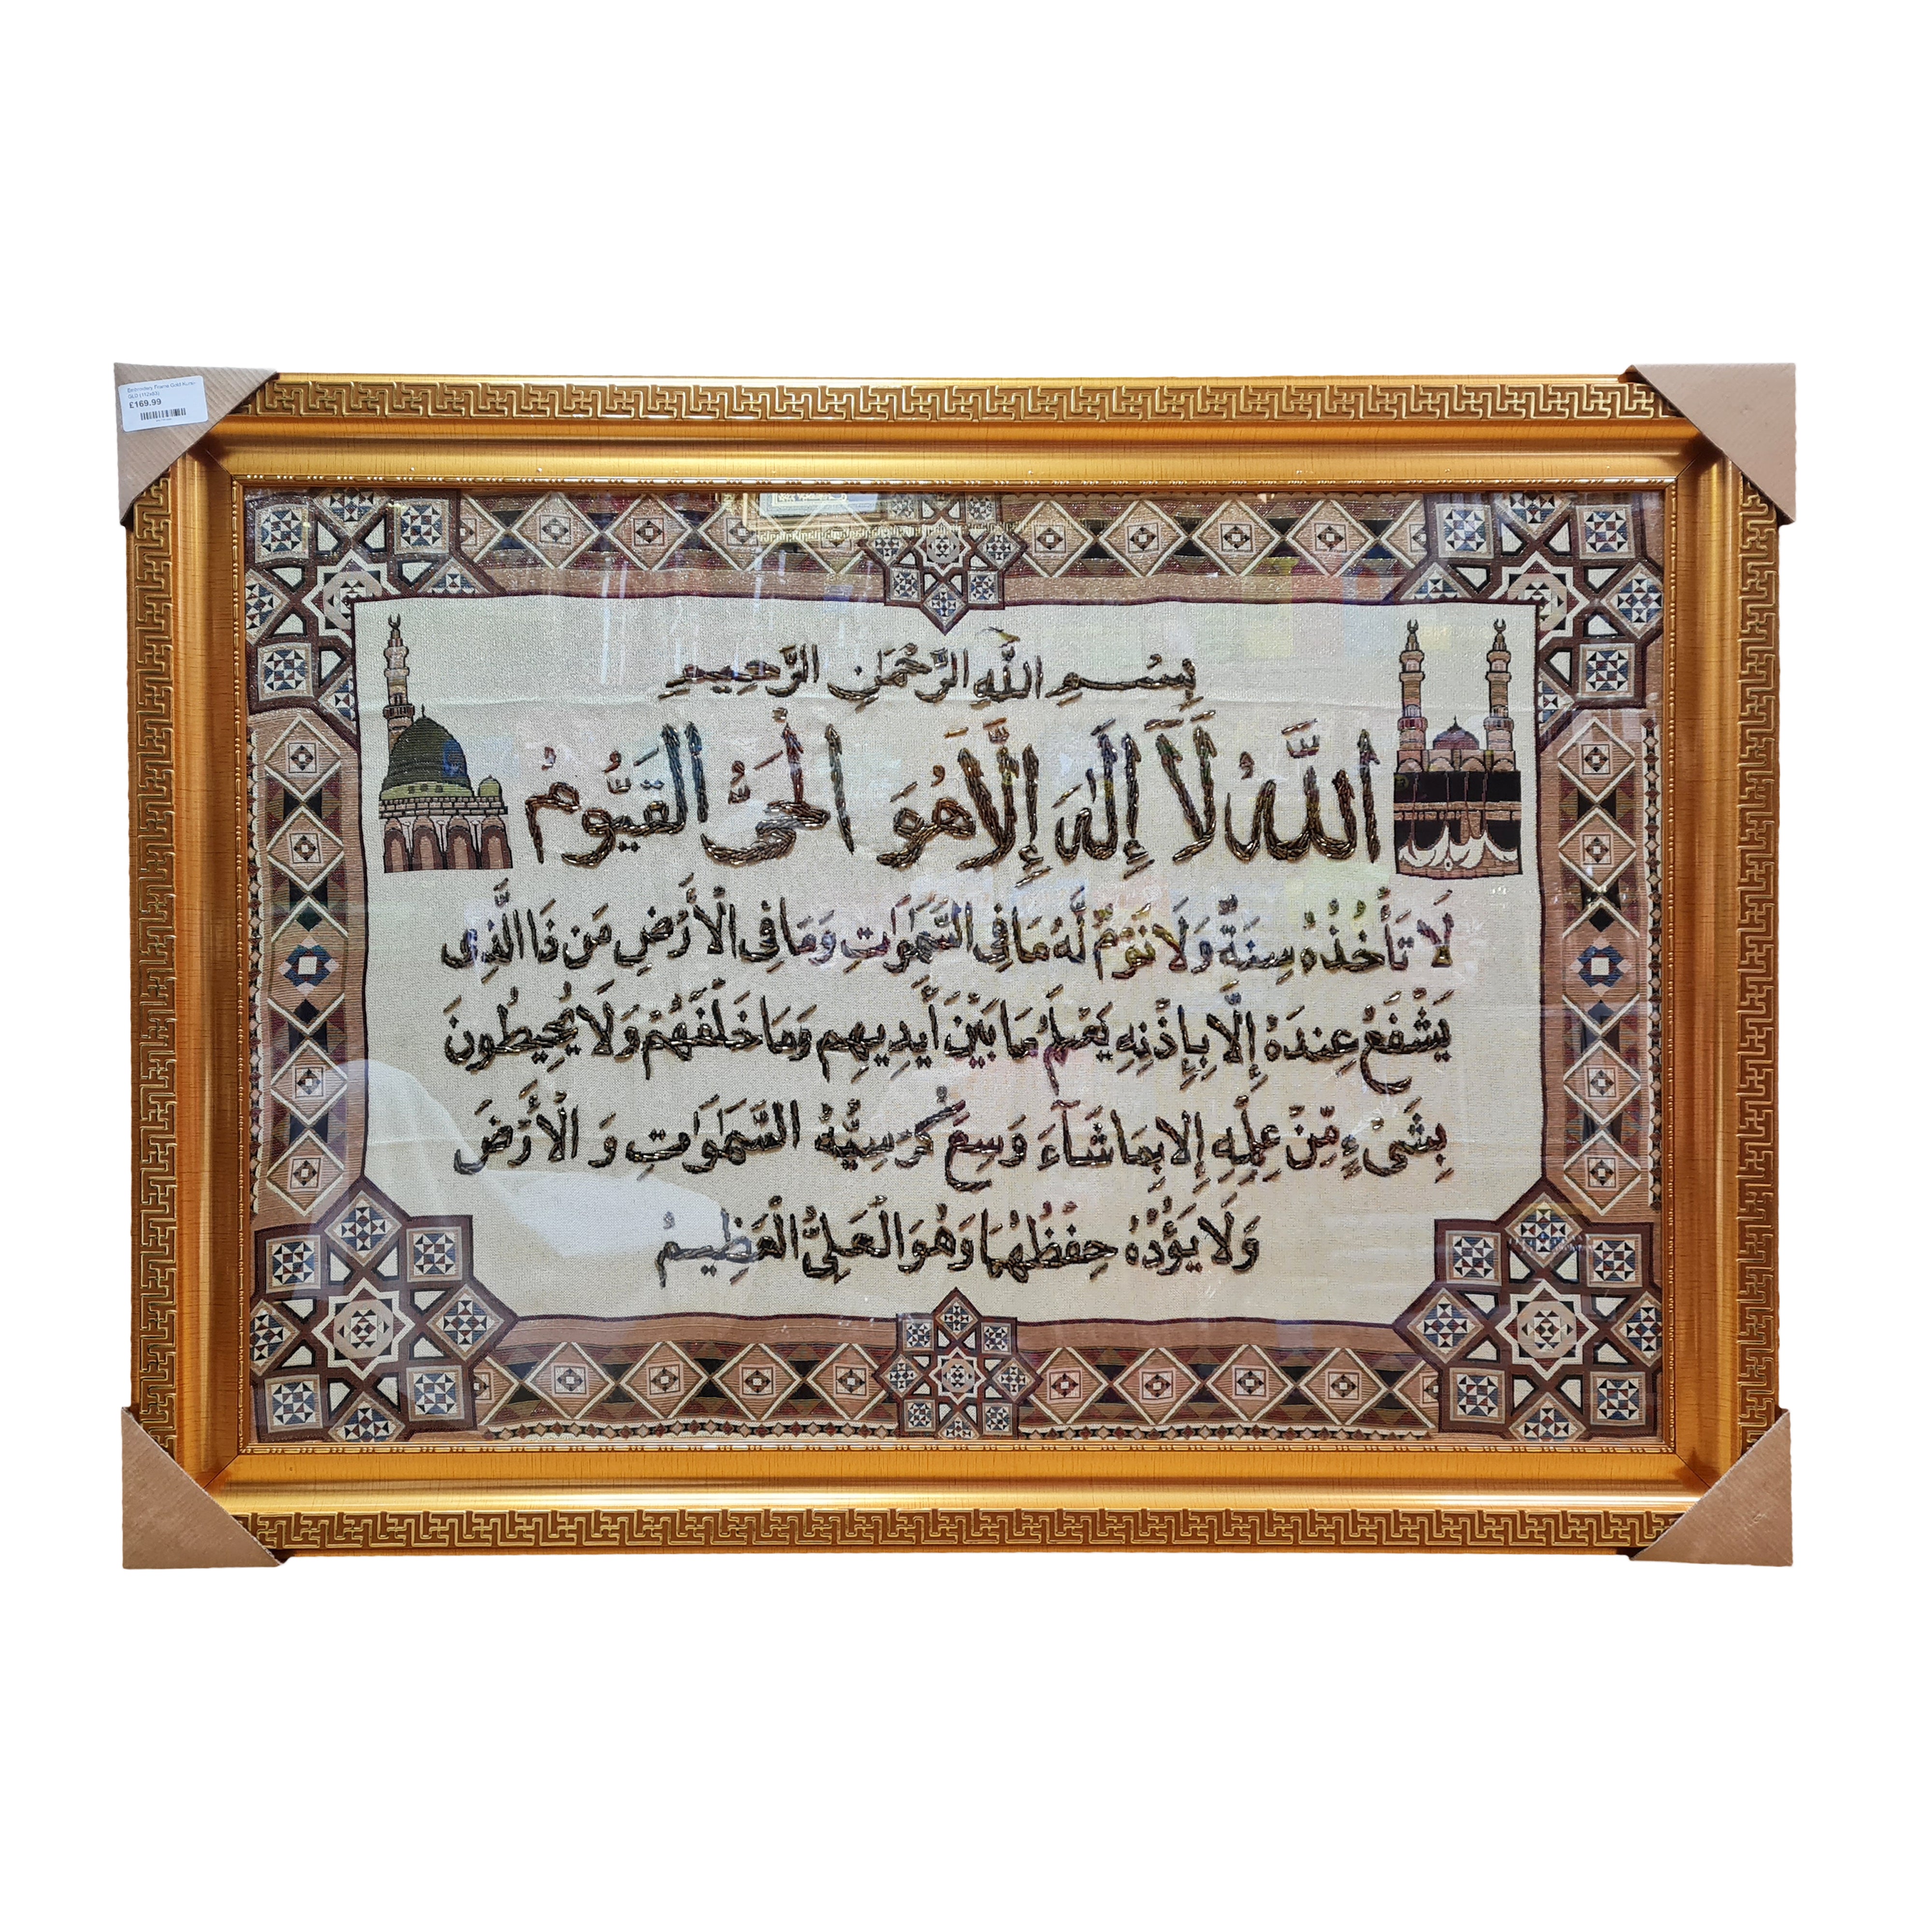 Embroidery Frame Gold Kursi-
OLD (112x83)
£169.99
بِسْمِ اللّٰهِ الرَّحْمٰنِ الرَّحِيمِ
اَللّٰهُ لَآ اِلٰهَ إِلَّا هُوَ الْحَىُّ الْقَيُّومُ
لَا تَأْخُذُهُ سِنَةٌ وَلَا نَوْمٌ لَّهُ مَا فِى السَّمٰوَاتِ وَمَا فِى الْأَرْضِ مَن ذَا الَّذِى
يَشْفَعُ عِندَهُ إِلَّا بِإِذْنِهِ يَعْلَمُ مَا بَيْنَ أَيْدِيهِم وَمَا خَلْفَهُمْ وَلَا يُحِيطُونَ
بِشَىْءٍ مِّنْ عِلْمِهِ إِلَّا بِمَا شَآءَ وَسِعَ كُرْسِيُّهُ السَّمٰوَاتِ وَ الْأَرْضَ
وَلَا يَؤُدُهُ حِفْظُهُمَا وَهُوَ الْعَلِىُّ الْعَظِيمُ